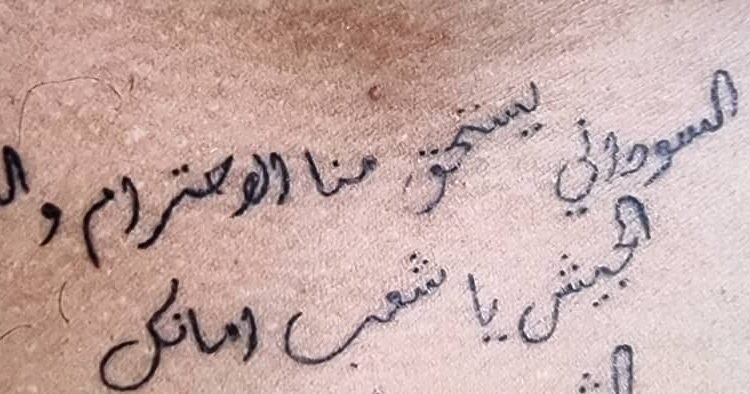 السوداني يستحق منا الاحترام و
الجيش يا شعب امانكل